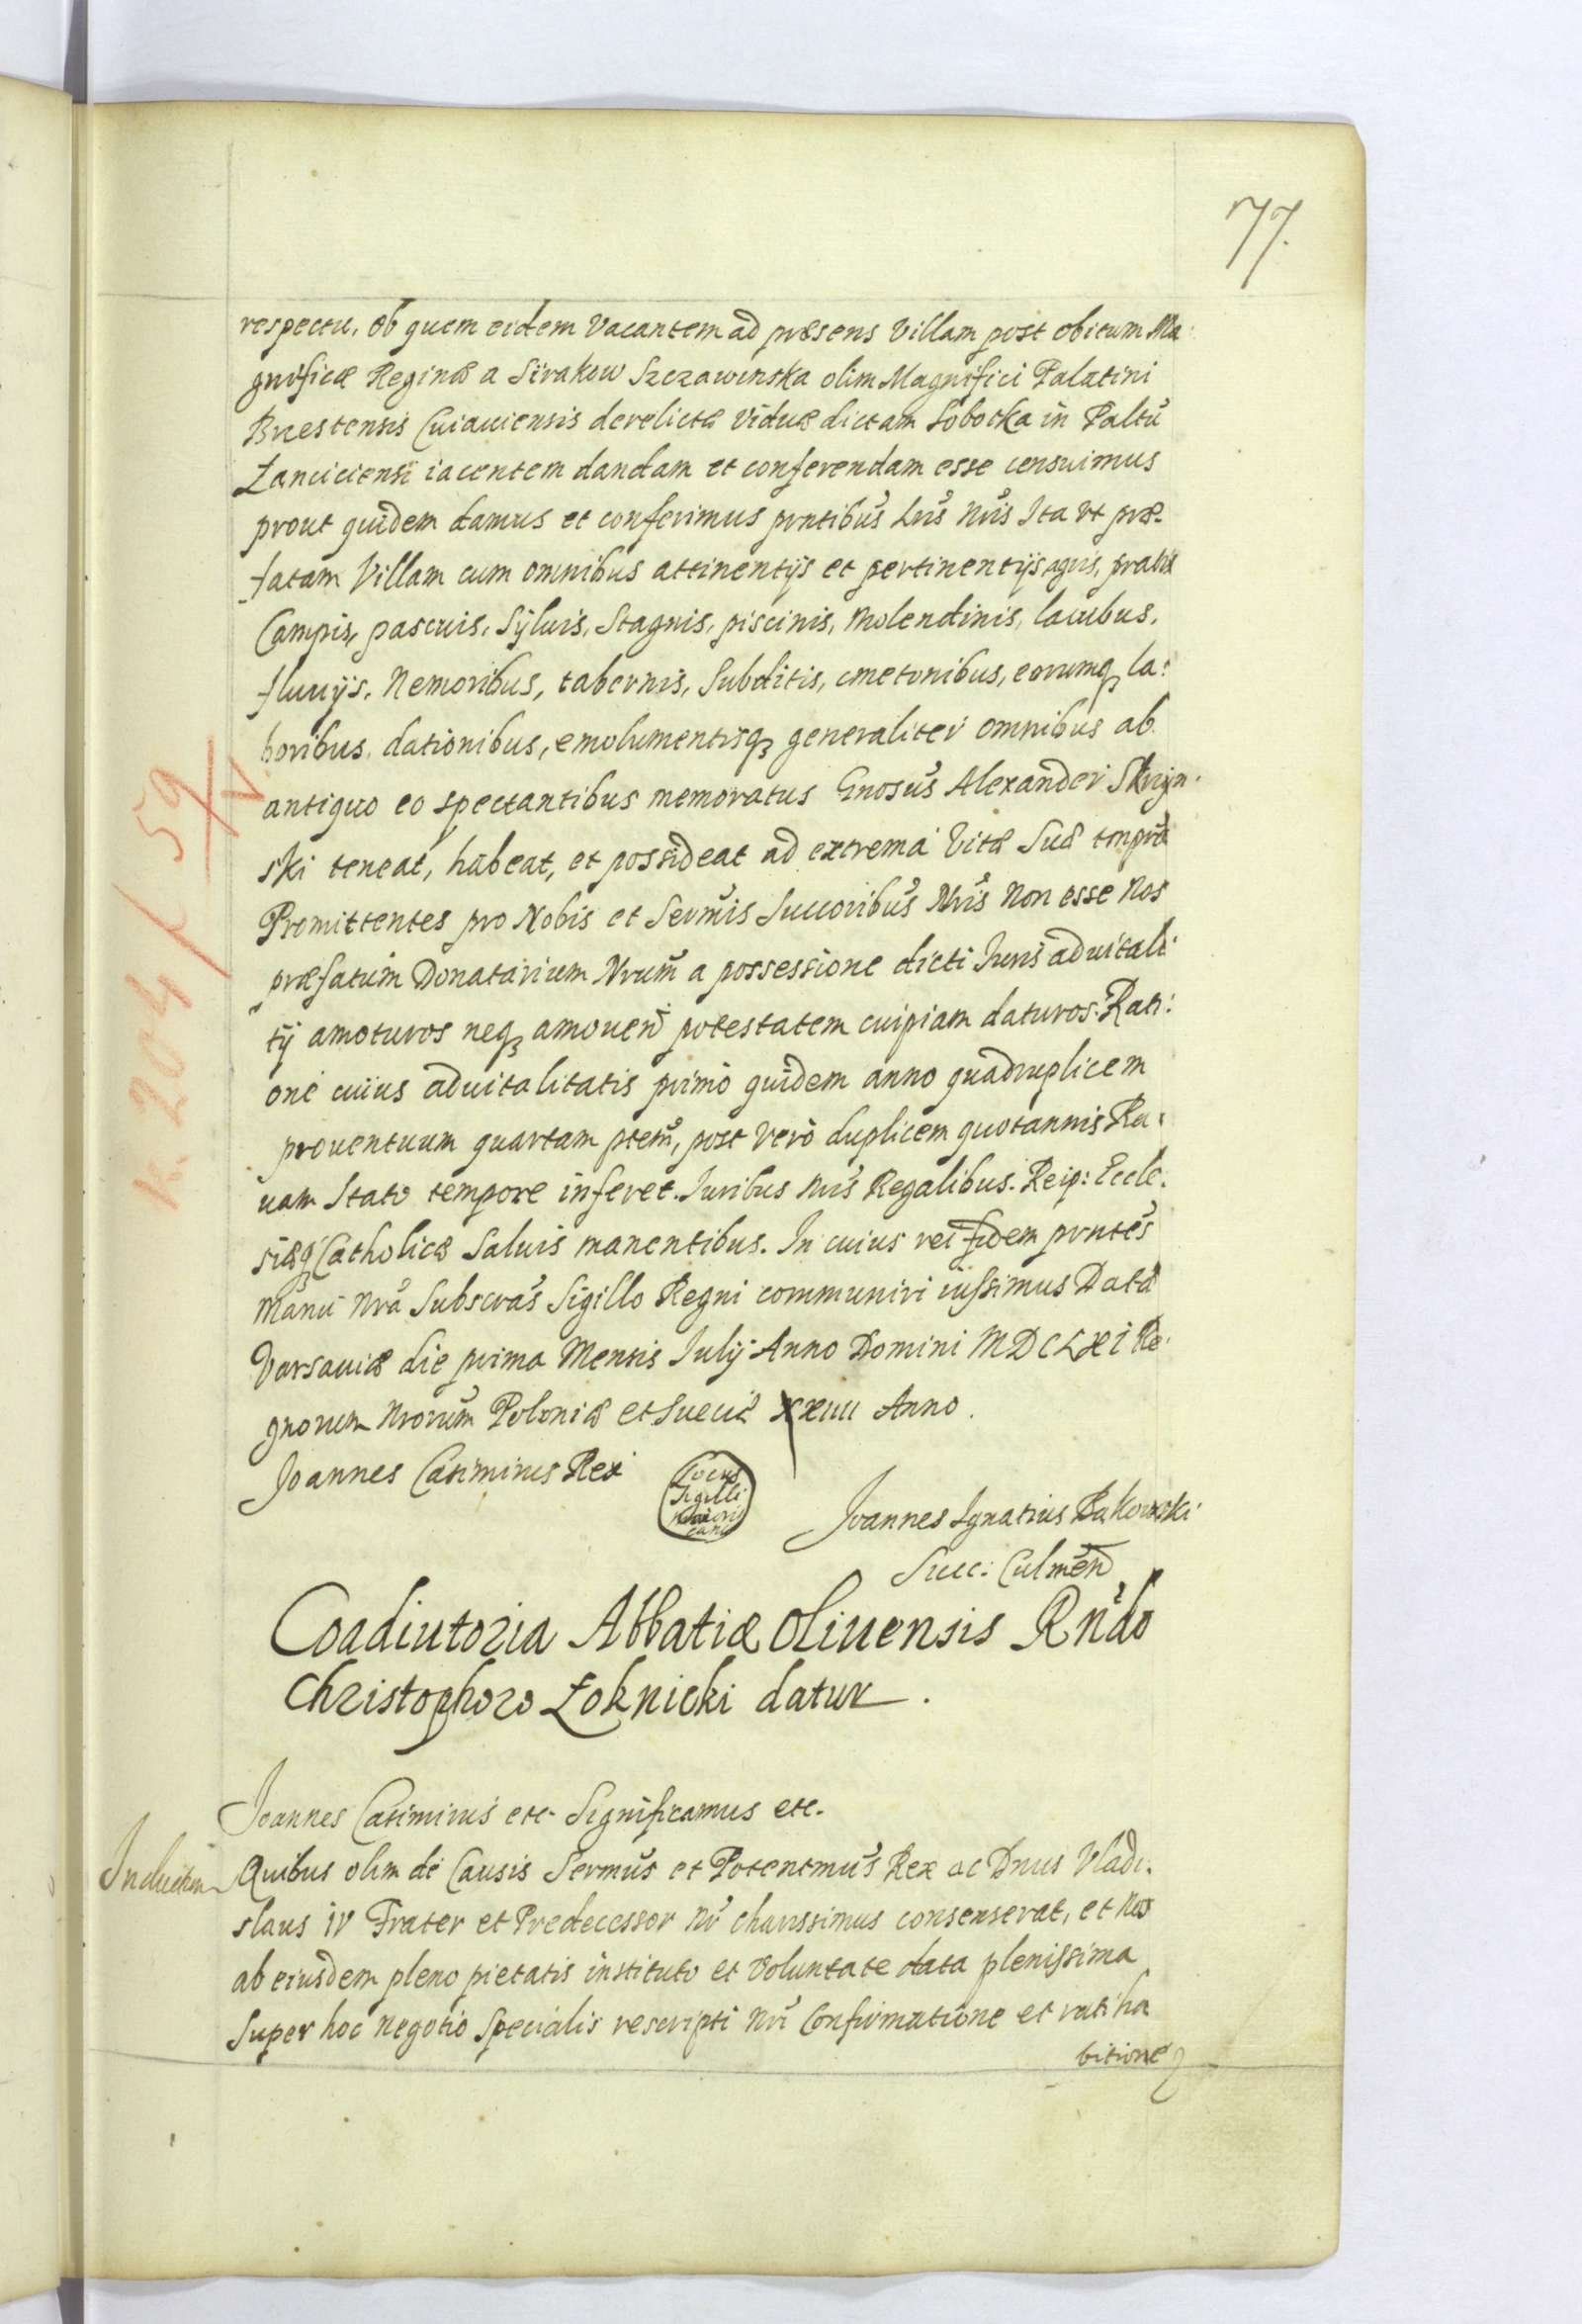 77.
respectu. Ob quem eidem Vacantem ad præsens Villam post obitum Ma:
gnificæ Reginæ a Sirakow Szczawinska olim Magnifici Palatini
Brzestensis Cuiauiensis derelictæ Viduæ dictam Sobotka in Paltu
Łanciciensi iacentem dandam et conferendam esse censuimus
prout quidem damus et conferimus pntibus Lris Nris Ita vt præ-
fatam Villam cum omnibus attinentijs et pertinentijs agris, pratis
Campis, pascuis, Syluis, Stagnis, piscinis, Molendinis, lacubus,
fluuijs, Nemoribus, tabernis, Subditis, cmetonibus, eorumq3 la:
boribus, dationibus, emolumentisq3 generaliter omnibus ab
antiquo eo spectantibus memoratus Gnosus Alexander Skrzyn:
ski teneat, habeat, et possideat ad extrema Vitæ Suæ tempora
Promittentes pro Nobis et Sermis Succoribus Nris Non esse Nos
præfatum Donatarium Nrum a possessione dicti Iuris aduitali:
tij amoturos neq3 amouendi potestatem cuipiam daturos. Rati:
one cuius aduitalitatis primo quidem anno quadruplicem
prouentuum quartam ptem, post vero duplicem quotannis Ra:
uam Stato tempore inferet. Iuribus Nris Regalibus. Reip: Eccle:
siæq3 Catholicæ Saluis manentibus. In cuius rei fidem pntes
Manu Nra Subscras Sigillo Regni communiri iussimus Data
Varsauiæ die prima Mensis Iulij Anno Domini MDCLXI Re:
gnorum Nrorum Poloniæ et Sueciæ xxiiii Anno.
Joannes Casimirus Rex
Locus Sigilli
Joannes Ignatius Bakowski
Succ: Culmen
Coadiutoria Abbatiæ Oliuensis Rndo
Christophoro Łoknicki datur.
Joannes Casimirus etc Significamus etc.
Inductum
Quibus olim de Causis Sermus et Potentmus Rex ac Dnus Vladi:
slaus IV Frater et Predecessor Nr charissimus consenserat, et Nos
ab eiusdem pleno pietatis instituto et Voluntate data plenissima
Super hoc Negotio Specialis rescripti Nri Confirmatione et ratiha
bitione
K. 204 / 59 V